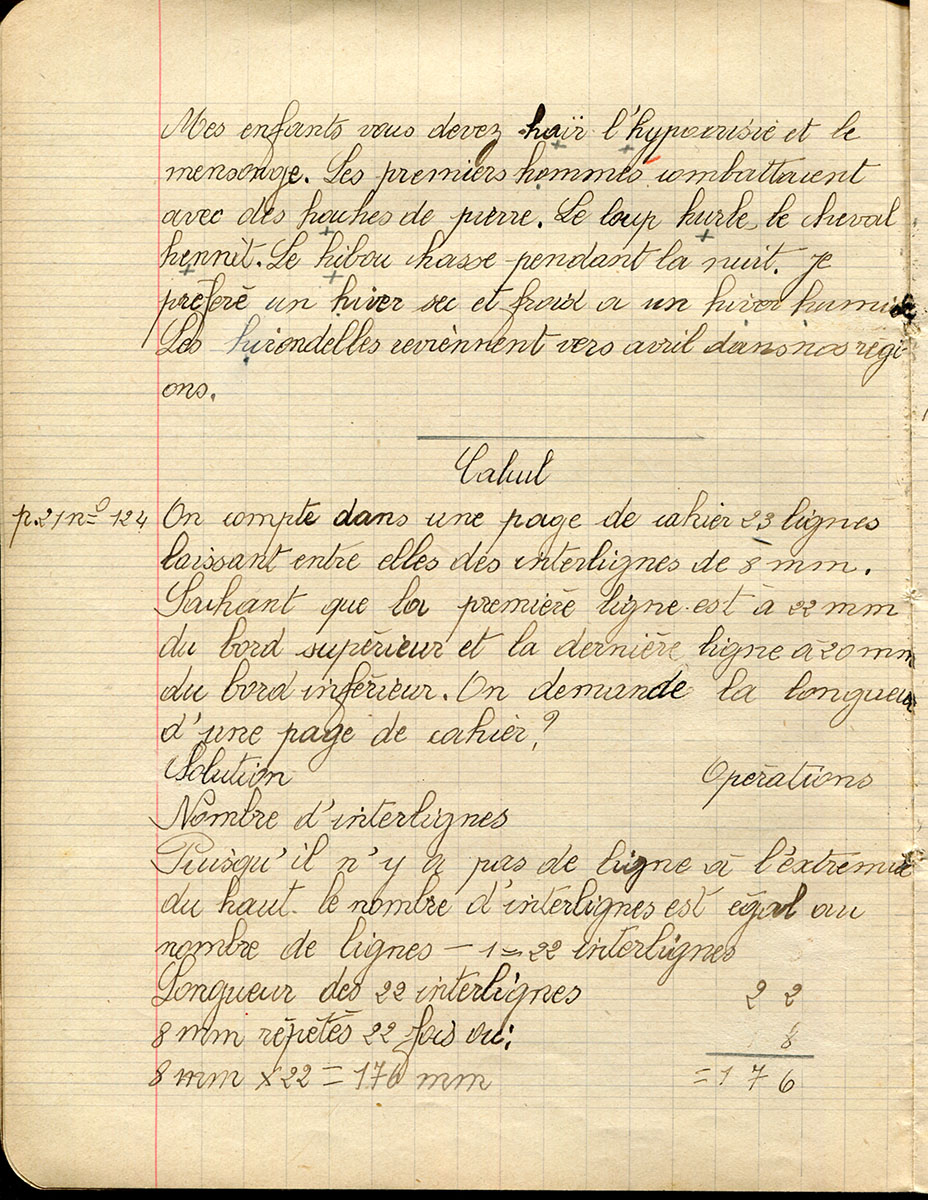 Mes enfants vous devez haïr l'hypocrisie et le
mensonge. Les premiers hommes combattaient
avec des haches de pierre. Le loup hurle, le cheval
hennit. Le hibou chasse pendant la nuit. Je
préfère un hiver sec et froid à un hiver humide
Les hirondelles reviennent vers avril dans nos régi-
ons.
Calcul
p. 21 n=º 124
On compte dans une page de cahier 23 lignes
laissant entre elles des interlignes de 8 mm.
Sachant que la première ligne est à 22 mm
du bord supérieur et la dernière ligne à 20 mm
du bord inférieur. On demande la longueur
d'une page de cahier?
Solution Opérations
Nombre d'interlignes
Puisqu'il n'y a pas de ligne à l'extrémité
du haut. le nombre d'interlignes est égal au
nombre de lignes – 1 = 22 interlignes
Longueur des 22 interlignes 2 2
8 mm répétés 22 fois ou: 8
8 mm x 22 = 176 mm = 1 7 6